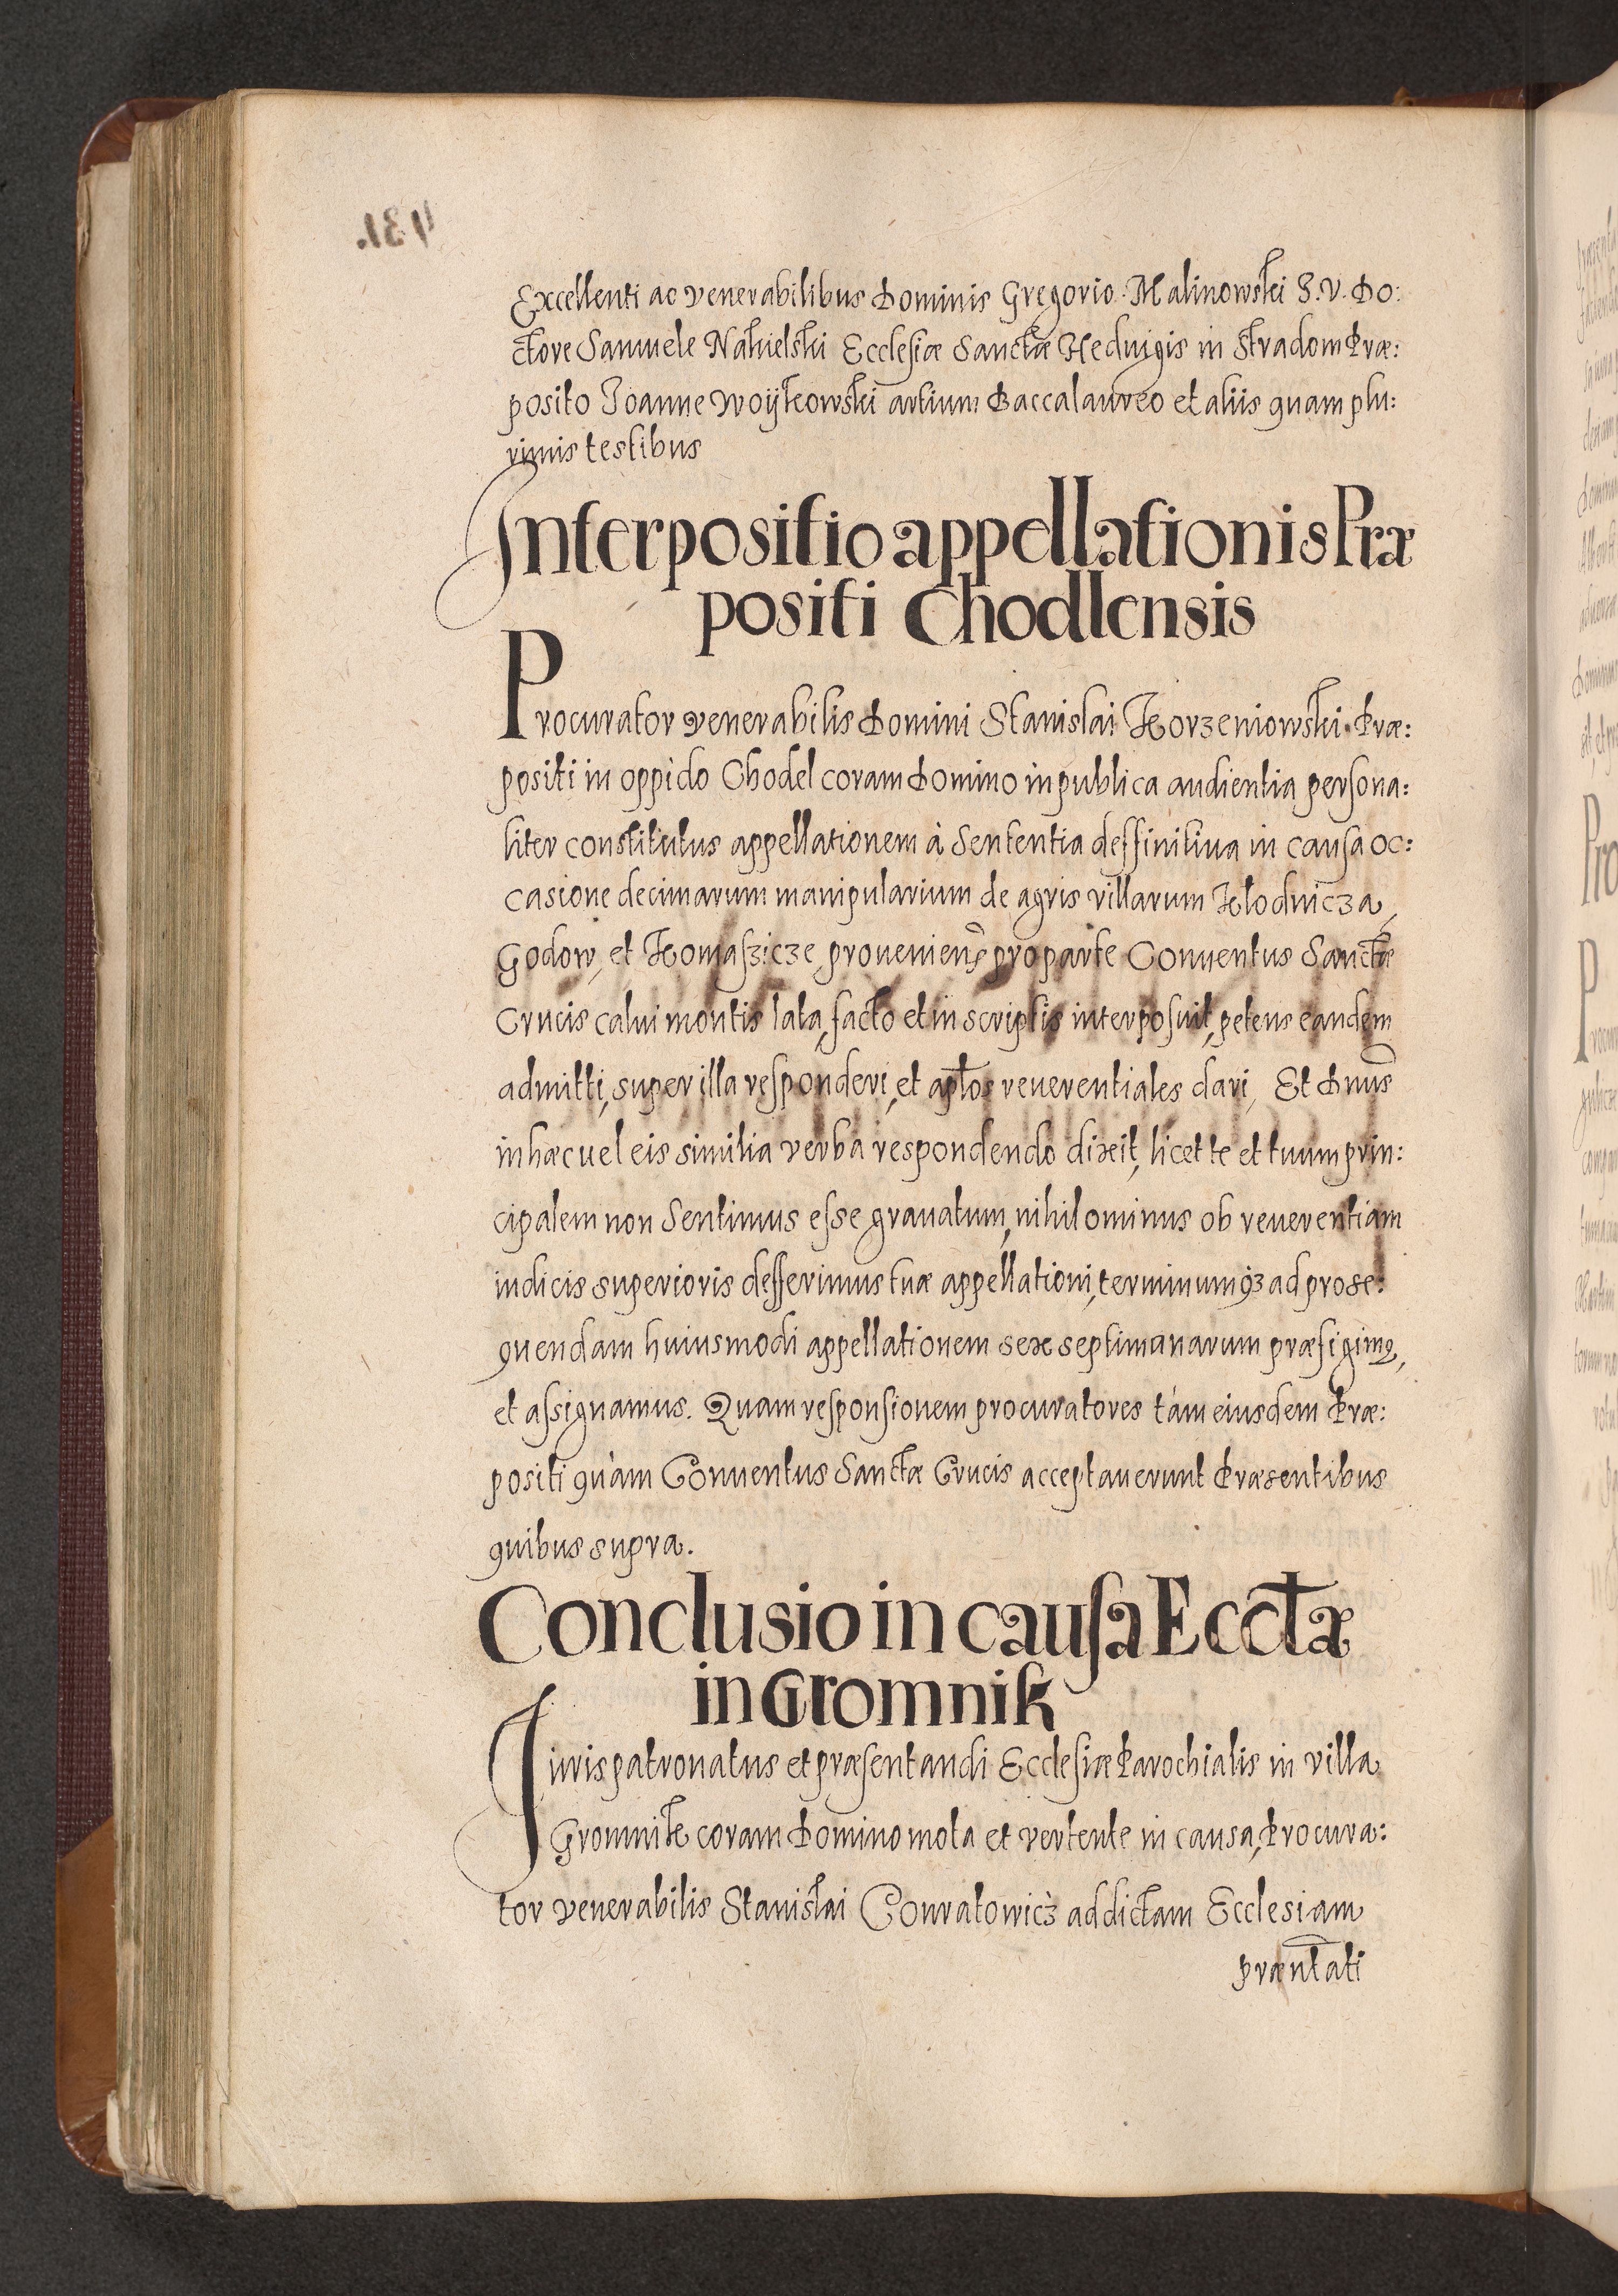 Excellenti ac venerabilibus Dominis Gregorio Malinowski J. V. Do:
ctore Samuele Nakielski Ecclesiæ Sanctæ Heduigis in Stradom Præ:
posito Joanne Woÿkowski artium Baccalaureo et aliis quam plu:
rimis testibus
Interpositio appellationis Præ
positi Chodlensis
Procurator venerabilis Domini Stanislai Korzeniowski Præ:
positi in oppido Chodel coram Domino in publica audientia persona:
liter constitutus appellationem à Sententia deffinitiua in causa oc:
casione decimarum manipularium de agris villarum Klodnicza,
Godow, et Komaszicze prouenien̄ pro parte Conuentus Sanctæ
Crucis calui montis lata, facto et in scriptis interposuit, petens eandem
admitti, super illa responderi, et aptos reuerentiales dari, Et Dnus
in hæc uel eis similia verba respondendo dixit, licet te et tuum prin:
cipalem non Sentimus esse grauatum, nihilominus ob reuerentiam
iudicis superioris defferimus tuæ appellationi, terminumqз ad prose:
quendam huiusmodi appellationem sex septimanarum præfigimꝰ,
et assignamus. Quam responsionem procuratores tàm eiusdem Præ:
positi quàm Conuentus Sanctæ Crucis acceptauerunt Præsentibus
quibus supra.
Conclusio in causa Eccłæ
in Gromnik
Juris patronatus et præsentandi Ecclesiæ Parochialis in villa
Gromnik coram Domino mota et vertente in causa, Procura:
tor venerabilis Stanislai Conratowicz ad dictam Ecclesiam
præntati